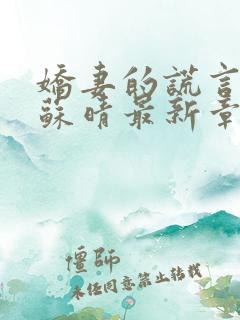 嬌妻的謊言
蘇晴最新章
僵師
未经同意禁止转载